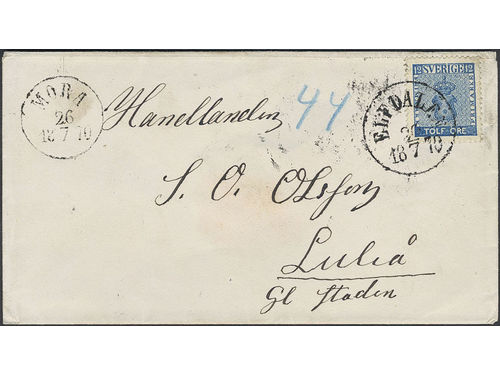 MORA
26
18 7 70
12 SVERIGE 12
TOLF ÖRE
ELFDALEN
18 7 70
44
Handlanden
S. O. Olsson
Luleå
Gl staden